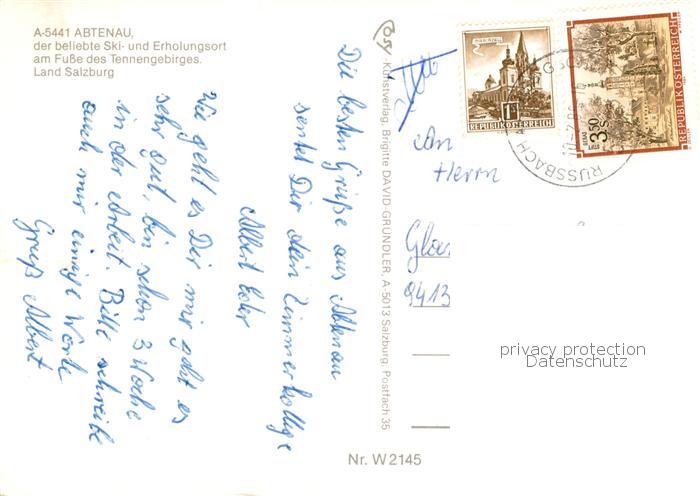 A-5441 ABTENAU,
der beliebte Ski- und Erholungsort
am Fuße des Tennengebirges.
Land Salzburg
Die besten Grüße aus Abtenau
sentet Dir dein Zimmerkollege
Albert
Wie geht es Dir mir geht es
sehr gut, bin schon 3 Woche
in der Arbeit. Bitte schreibe
auch mir einige Worte
Gruß Albert
Kunstverlag, Brigitte DAVID-GRÜNDLER, A-5013 Salzburg, Postfach 35
Nr. W 2145
MARIAZELL
1S
REPUBLIK ÖSTERREICH
S 3.50
REPUBLIK ÖSTERREICH
RUSSBACH
An
Herrn
9413
privacy protection
Datenschutz